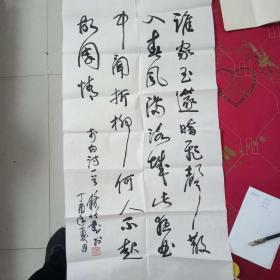 誰家玉篴暗飛聲散
入春風满洛城此夜曲
中聞折柳何人不起
故園情
李白诗一首
丁酉年夏日